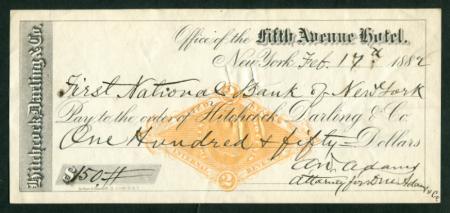 Office of the Fifth Avenue Hotel.
New York Feb. 17th 1882
First National Bank of New York
Pay to the order of Hitchcock, Darling & Co.
One Hundred & fifty Dollars
$150.#
Adams
Attorney for Adams & Co
Hitchcock, Darling & Co.
2